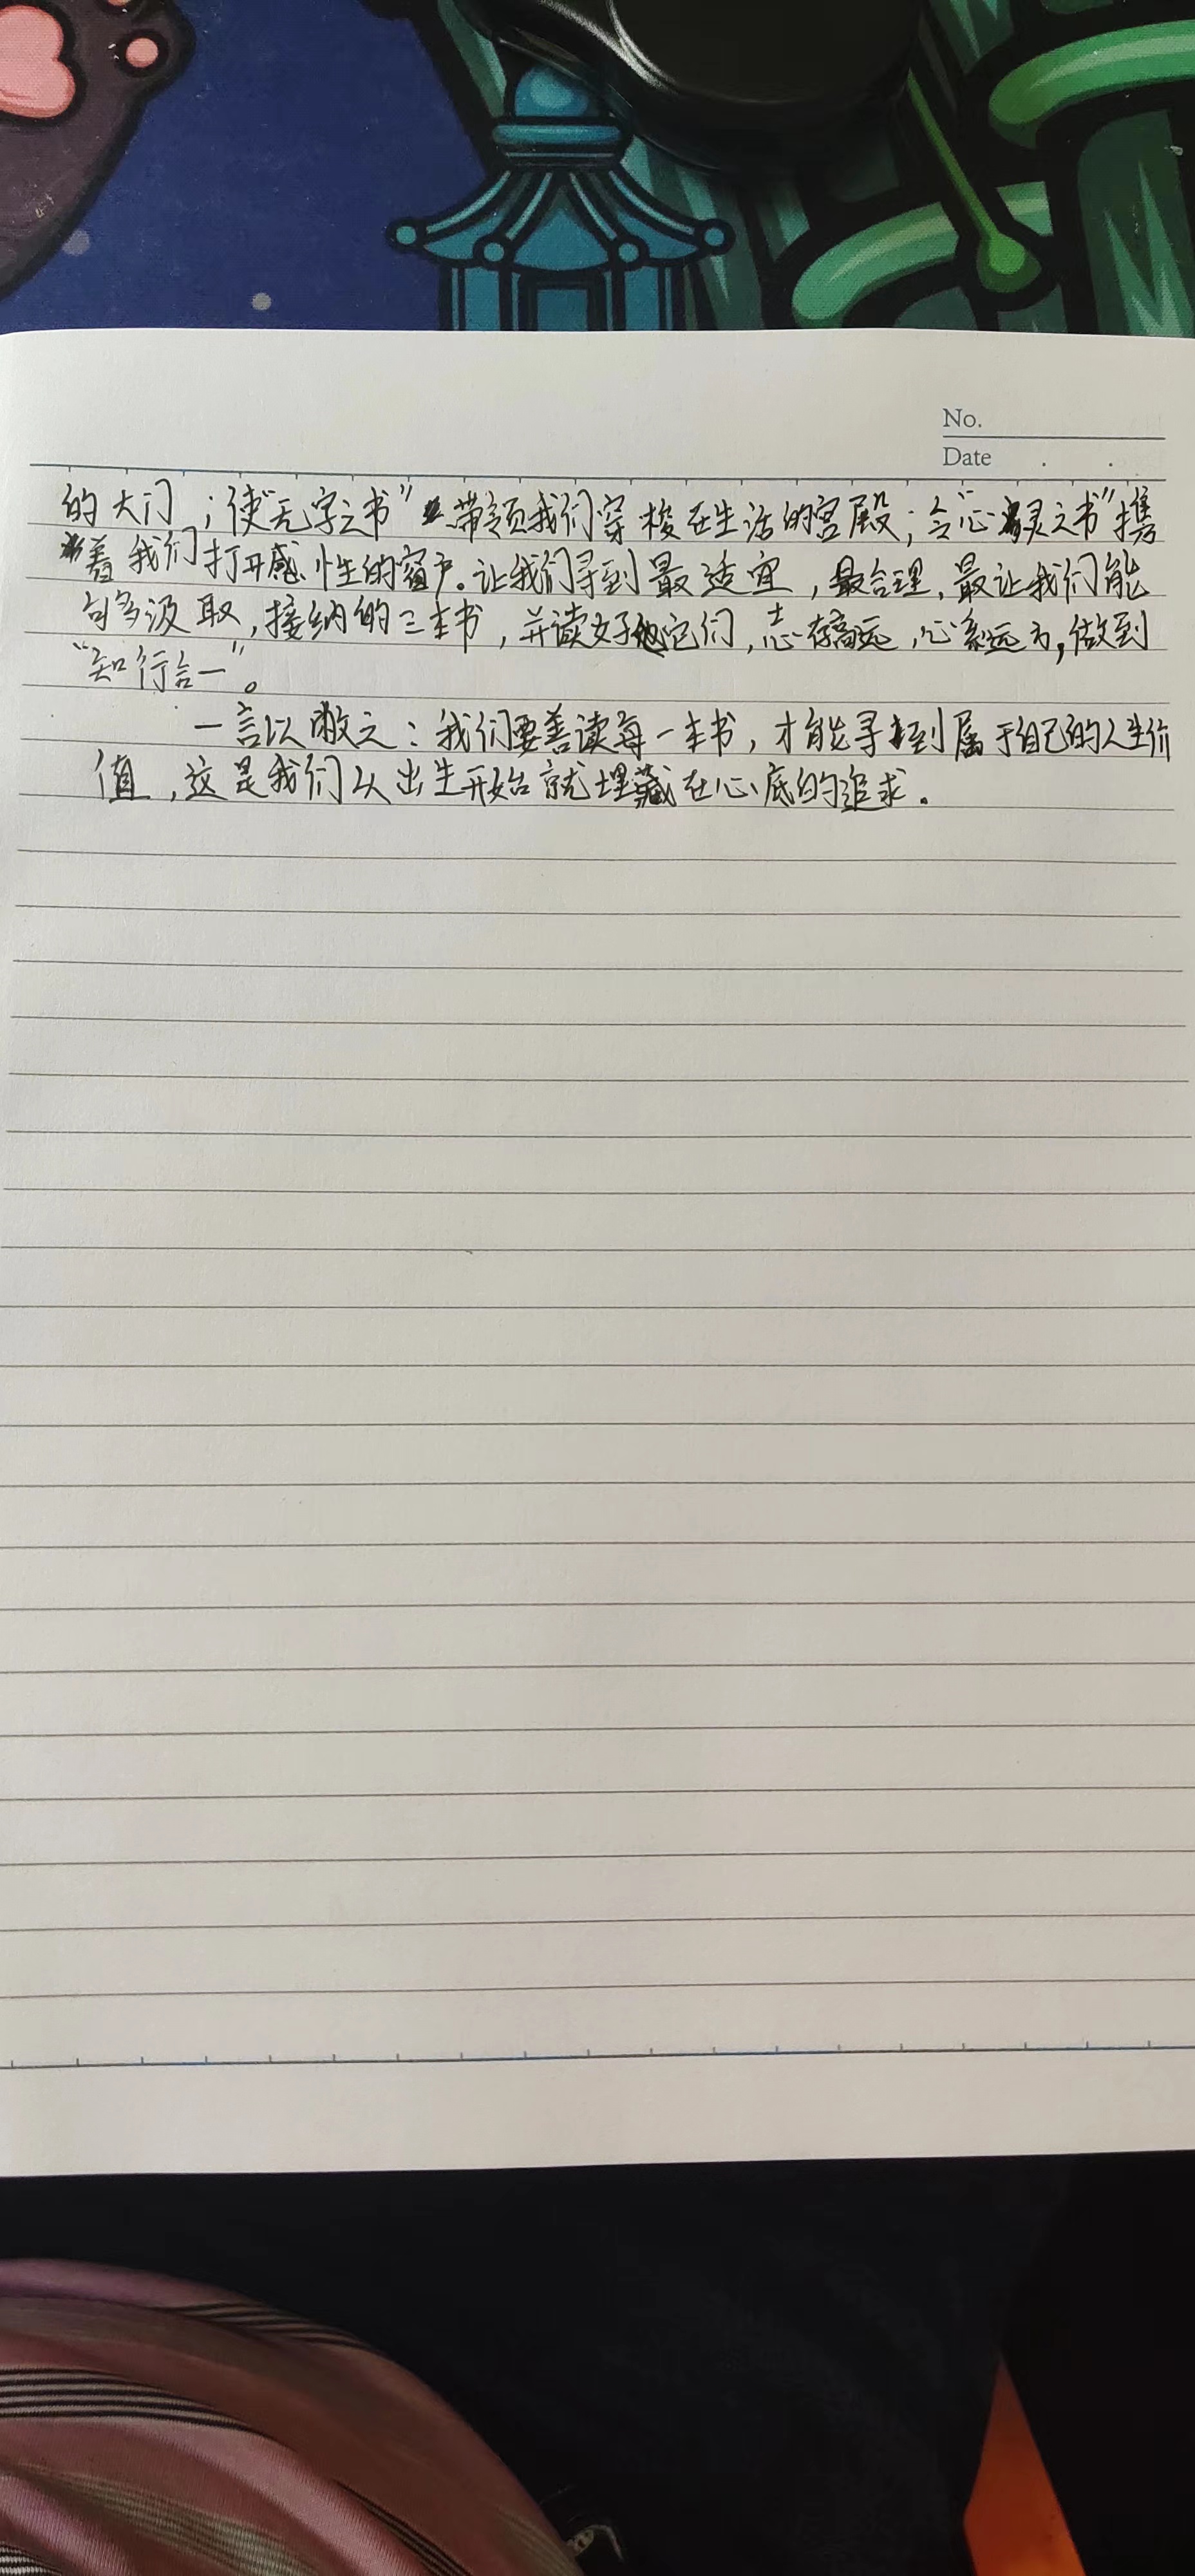 No.
Date
的大门；使“无字之书”带领我们穿梭在生活的宫殿；令“心灵之书”携
着我们打开感性的窗户。让我们寻到最适宜，最合理，最让我们能
够多汲取，接纳的三本书，并读好它们，志存高远，心系远方，做到
“知行合一”。
一言以蔽之：我们要善读每一本书，才能寻找到属于自己的人生价
值，这是我们从出生开始就埋藏在心底的追求。